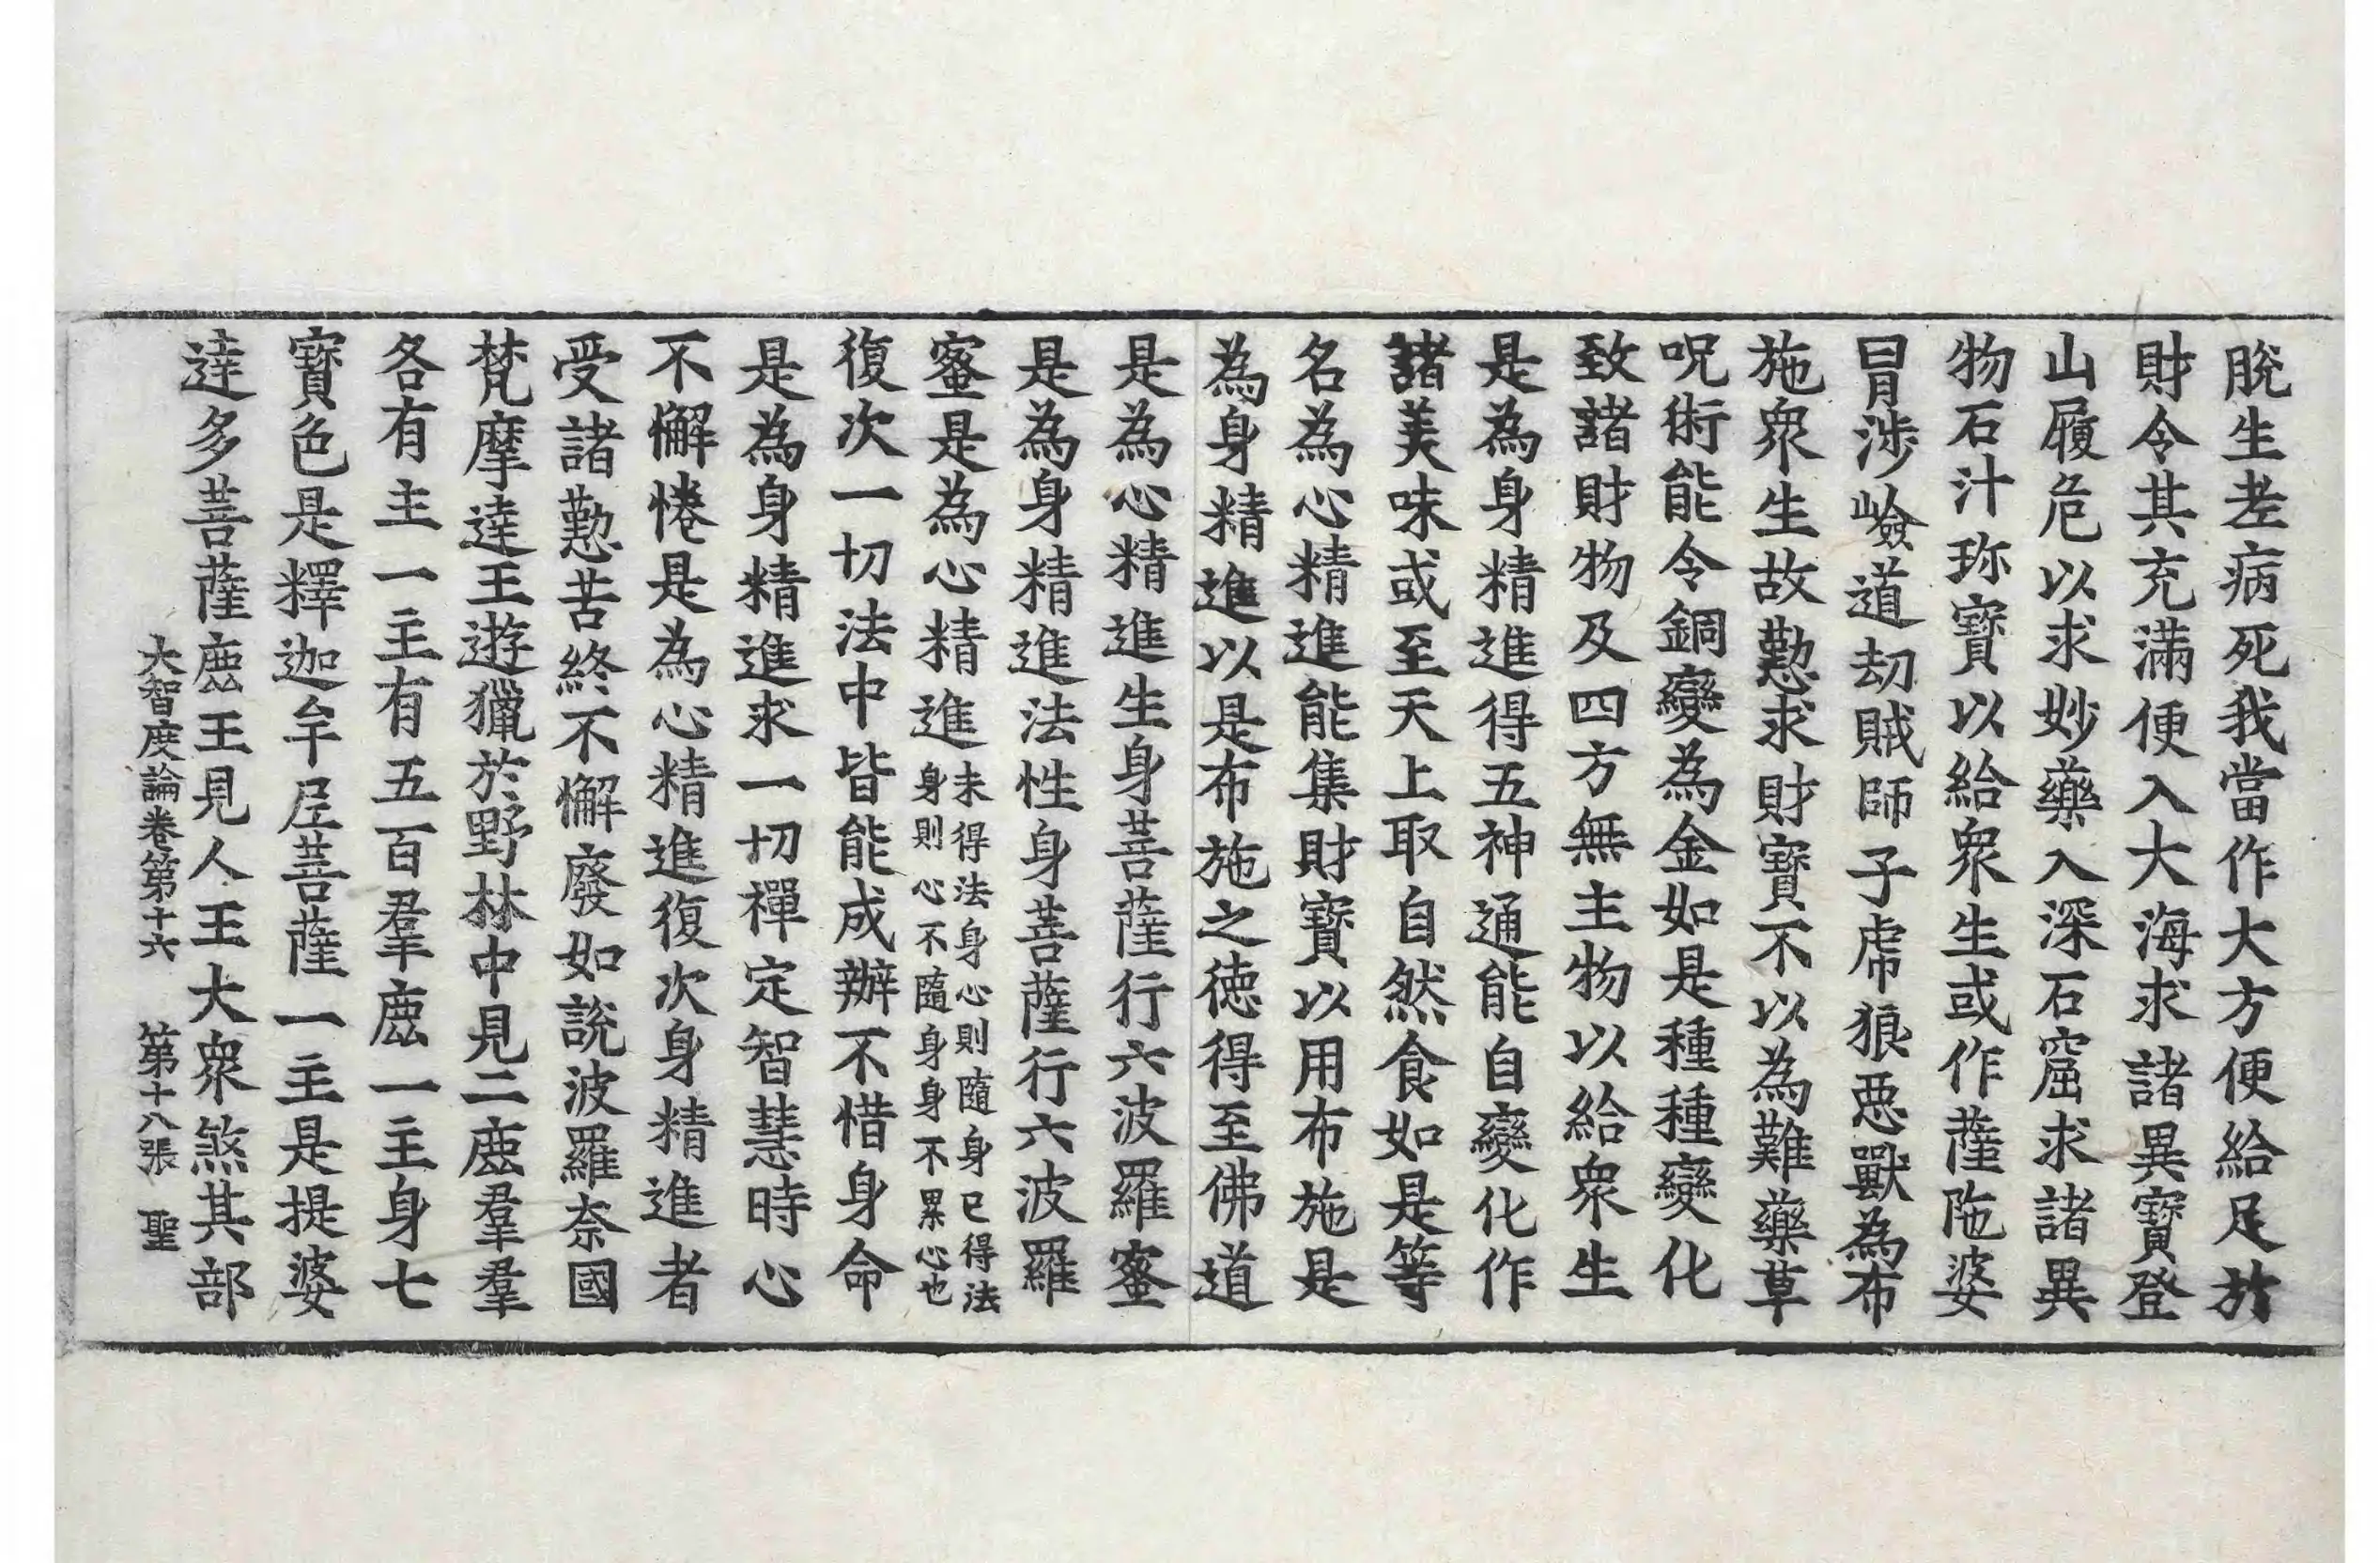 脫生老病死我當作大方便給足於
財令其充滿便入大海求諸異寶登
山履危以求妙藥入深石窟求諸異
物石汁珎寶以給衆生或作薩陁婆
冒涉嶮道劫賊師子虎狼惡獸為布
施衆生故懃求財寶不以為難藥草
呪術能令銅變為金如是種種變化
致諸財物及四方無主物以給衆生
是為身精進得五神通能自變化作
諸美味或至天上取自然食如是等
名為心精進能集財寶以用布施是
為身精進以是布施之德得至佛道
是為心精進生身菩薩行六波羅蜜
是為身精進法性身菩薩行六波羅
蜜是為心精進未得法身心則隨身已得法身則心不隨身身不累心也
復次一切法中皆能成辦不惜身命
是為身精進求一切禪定智慧時心
不懈惓是為心精進復次身精進者
受諸懃苦終不懈廢如說波羅奈國
梵摩達王遊獵於野林中見二鹿羣羣
各有主一主有五百羣鹿一主身七
寶色是釋迦牟尼菩薩一主是提婆
達多菩薩鹿王見人王大衆煞其部
大智度論卷第十六 第十八張 聖